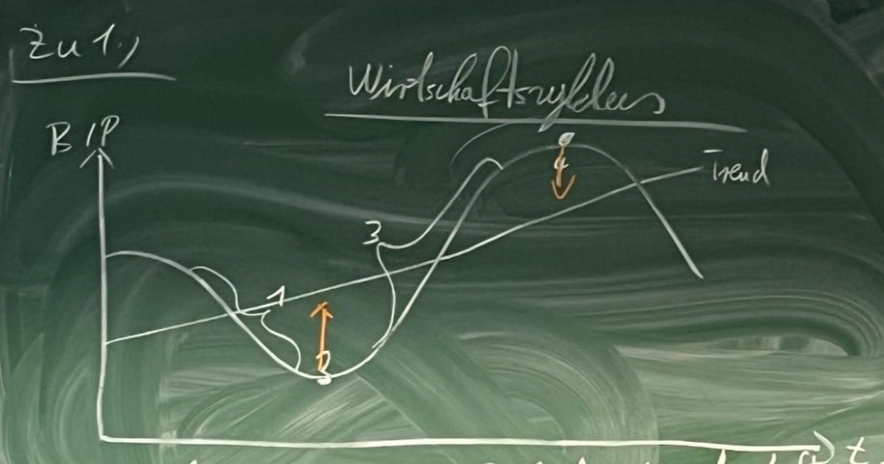 Zu 1.)
Wirtschaftszyklus
BIP
Trend
1
2
3
4
t